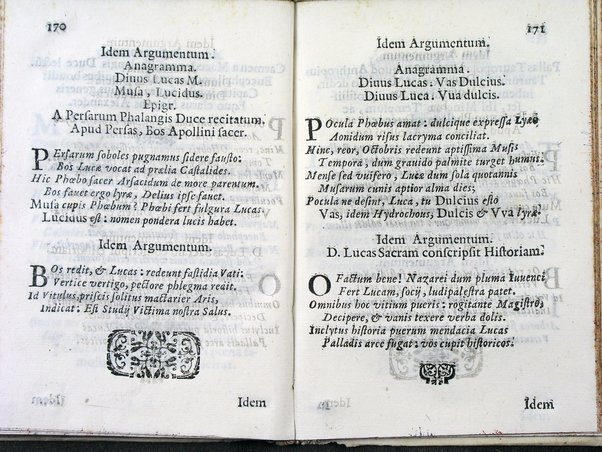 170
Idem Argumentum.
Anagramma.
Diuus Lucas M.
Musa, Lucidus.
Epigr.
A Persarum Phalangis Duce recitatum.
Apud Persas, Bos Apollini sacer.
PErsarum soboles pugnamus sidere fausto:
Bos Lucæ vocat ad prælia Castalides.
Hic Phœbo sacer Arsacidum de more parentum.
Bos fauet ergo lyræ, Delius ipse fauet.
Musa cupis Phœbum? Phœbi fert fulgura Lucas.
Lucidus est: nomen pondera lucis habet.
Idem Argumentum.
BOs redit, & Lucas: redeunt fastidia Vati:
Vertice vertigo, pectore phlegma redit.
Id Vitulus, priscis solitus mactarier Aris,
Indicat: Est Studij Victima nostra Salus.
Idem
171
Idem Argumentum.
Anagramma.
Diuus Lucas: Vas Dulcius.
Diuus Luca: Vua dulcis.
POcula Phœbus amat: dulcique expressa Lyæo
Aonidum risus lacryma conciliat.
Hinc, reor, Octobris redeunt aptissima Musis
Tempora, dum grauido palmite turget humus.
Mense sed vuifero, Lucæ dum sola quotannis
Musarum cunis aptior alma dies;
Pocula ne desint, Luca, tu Dulcius esto
Vas, idem Hydrochous, Dulcis & Vva lyræ.
Idem Argumentum.
D. Lucas Sacram conscripsit Historiam.
O Factum bene! Nazarei dum pluma Iuuenci
Fert Lucam, socij, ludi palestra patet.
Omnibus hoc vitium pueris: rogitante Magistro,
Decipere, & vanis texere verba dolis.
Inclytus historia puerum mendacia Lucas
Palladis arce fugat: vos cupit historicos.
Idem